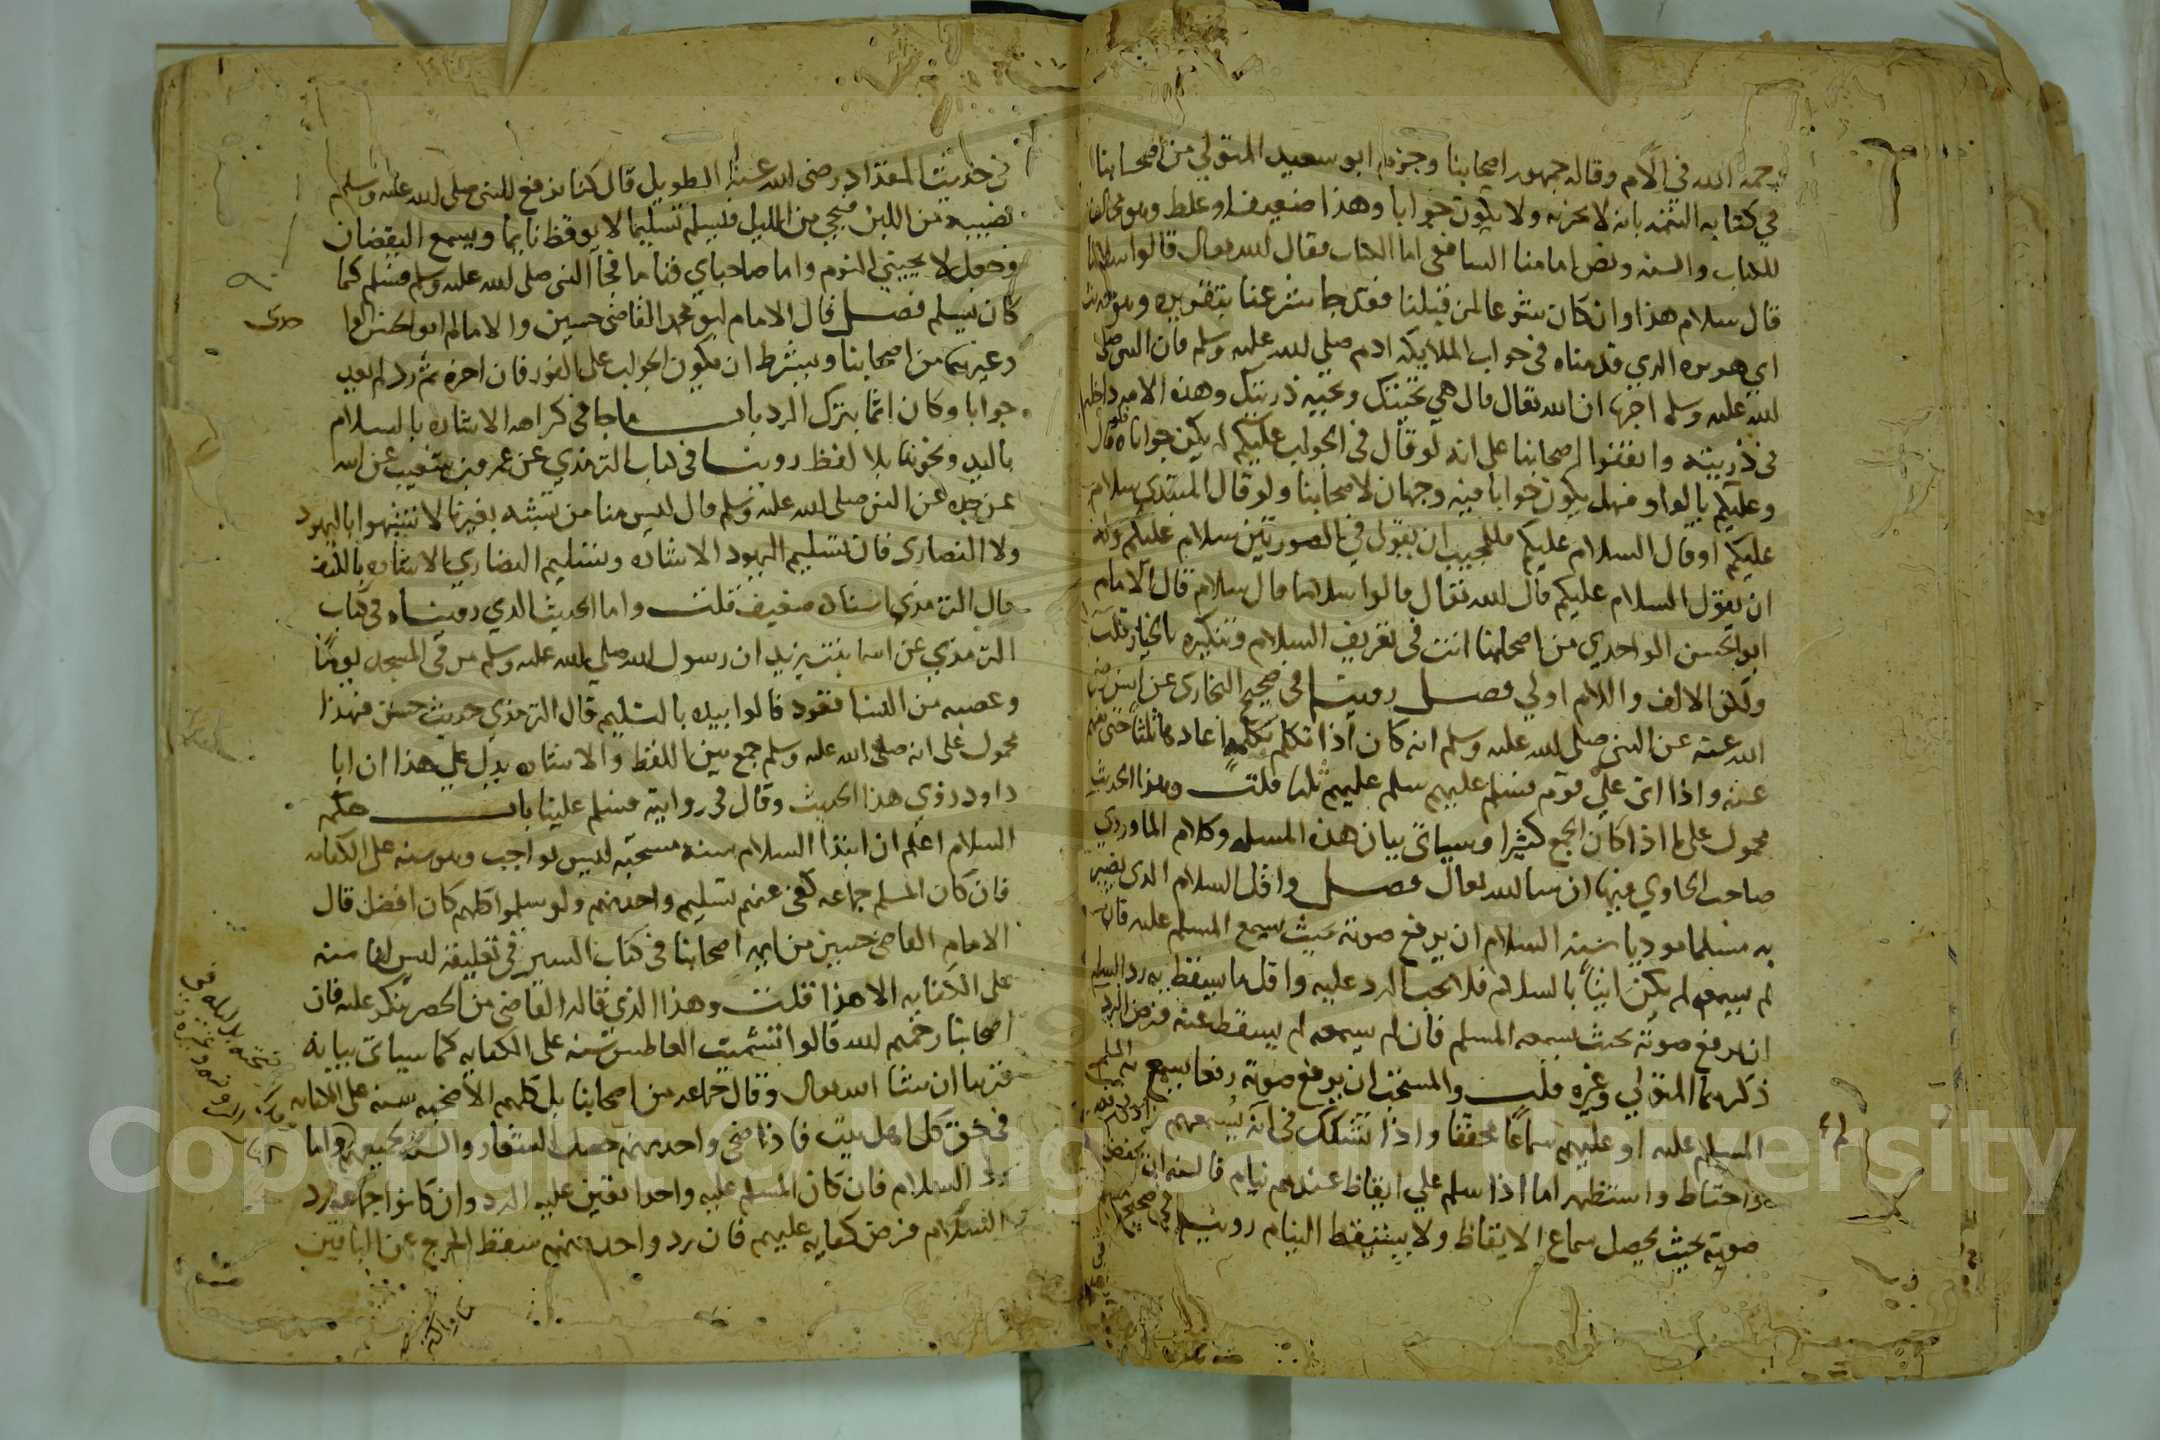 رحمه الله في الام وقاله جمهور اصحابنا وجزم ابو سعيد المتولي من اصحابنا
في كتابه التتمه بانه لا يجزيه ولا يكون جوابا وهذا ضعيف او غلط وهو مخالف
للكتاب والسنه ونص امامنا الشافعي اما الكتاب فقال الله تعالى قالوا سلاما
قال سلام هذا وان كان شرعا لمن قبلنا فقد جا شرعنا بتقريره وهو حديث
ابي هريره الذي قدمناه في جواب الملايكه ادم صلي الله عليه وسلم فان النبي صلى
الله عليه وسلم اخبرنا ان الله تعالى قال هي تحيتك وتحيه ذريتك وهذه الامه داخله
في ذريته واتفق اصحابنا على انه لو قال في الجواب عليكم لم يكن جوابا فلو قال
وعليكم بالواو فهل يكون جوابا فيه وجهان لاصحابنا ولو قال المبتدي سلام
عليكم او قال السلام عليكم فللمجيب ان يقول في الصورتين سلام عليكم وله
ان يقول السلام عليكم قال الله تعالى قالوا سلاما قال سلام قال الامام
ابو الحسن الواحدي من اصحابنا انت في تعريف السلام وتنكيره بالخيار قلت
ولكن الالف واللام اولي فصل روينا في صحيح البخاري عن انس رضي
الله عنه عن النبي صلى الله عليه وسلم انه كان اذا تكلم بكلمة اعادها ثلثا حتى تفهم
عنه واذا اتى علي قوم فسلم عليهم سلم عليهم ثلثا قلت وهذا الحديث
محمول على ما اذا كان الجمع كثيرا وسياتي بيان هذه المسله وكلام الماوردي
صاحب الحاوي فيها ان شا الله تعالى فصل واقل السلام الذي يصير
به مسلما موديا سنه السلام ان يرفع صوته بحيث يسمع المسلم عليه فان
لم يسمعه لم يكن اتيا بالسلام فلا يجب الرد عليه واقل ما يسقط به رد السلام
ان يرفع صوته بحيث يسمعه المسلم فان لم يسمعه لم يسقط عنه فرض الرد
ذكرهما المتولي وغيره قلت والمستحب ان يرفع صوته رفعا يسمع به المسلم
المسلم عليه او عليهم سماعا محققا واذا تشكك في انه يسمعهم زاد في رفعه
واحتاط واستظهر اما اذا سلم علي ايقاظ عندهم نيام فالسنه ان يخفض
صوته بحيث يحصل سماع الايقاظ ولا يستيقظ النيام روينا في صحيح مسلم
في حديث المقداد رضى الله عنه الطويل قال كنا نرفع للنبي صلى الله عليه وسلم
نصيبه من اللبن فيجي من الليل فيسلم تسليما لا يوقظ نايما ويسمع اليقضان
وجعل لا يجيني النوم واما صاحباي فناما فجا النبي صلى الله عليه وسلم فسلم كما
كان يسلم فصل قال الامام ابو محمد القاضي حسين والامام ابو الحسن الوا
حدى
وغيرهما من اصحابنا ويشترط ان يكون الجواب على الفور فان اخره ثم رد لم يعد
جوابا وكان اثما بترك الرد باب ما جا في كراهه الاشاره بالسلام
باليد ونحوها بلا لفظ روينا في كتاب الترمذي عن عمرو بن شعيب عن ابيه
عن جده عن النبي صلى الله عليه وسلم قال ليس منا من تشبه بغيرنا لا تشبهوا باليهود
ولا النصارى فان تسليم اليهود الاشاره وتسليم النصاري الاشاره بالكف
قال الترمذي اسناده ضعيف قلت واما الحديث الذي رويناه في كتاب
الترمذي عن اسما بنت يزيد ان رسول الله صلي الله عليه وسلم مر في المسجد يوما
وعصبه من النسا قعود فالوا بيده بالتسليم قال الترمذي حديث حسن فهذا
محمول على انه صلى الله عليه وسلم جمع بين اللفظ والاشاره يدل علي هذا ان ابا
داود روي هذا الحديث وقال في روايته فسلم علينا باب حكم
السلام اعلم ان ابتدا السلام سنه مستحبه ليس بواجب وهو سنه على الكفايه
فان كان المسلم جماعه كفى عنهم تسليم واحد منهم ولو سلموا كلهم كان افضل قال
الامام القاضي حسين من ايمه اصحابنا في كتاب السير في تعليقه ليس لنا سنه
على الكفايه الا هذا قلت وهذا الذي قاله القاضي من الحصر ينكر عليه فان
اصحابنا رحمهم الله قالوا تشميت العاطس سنه على الكفايه كما سياتي بيانه
قريبا ان شا الله تعالى وقال جماعه من اصحابنا بل كلهم الاضحيه سنه على الكفايه
في حق كل اهل بيت فاذا ضحى واحد منهم حصل الشعار والسنه لجميعهم واما
رد السلام فان كان المسلم عليه واحدا تعين عليه الرد وان كانوا جماعه كان رد
السلام فرض كفايه عليهم فان رد واحد منهم سقط الحرج عن الباقين
Copyright © King Saud University